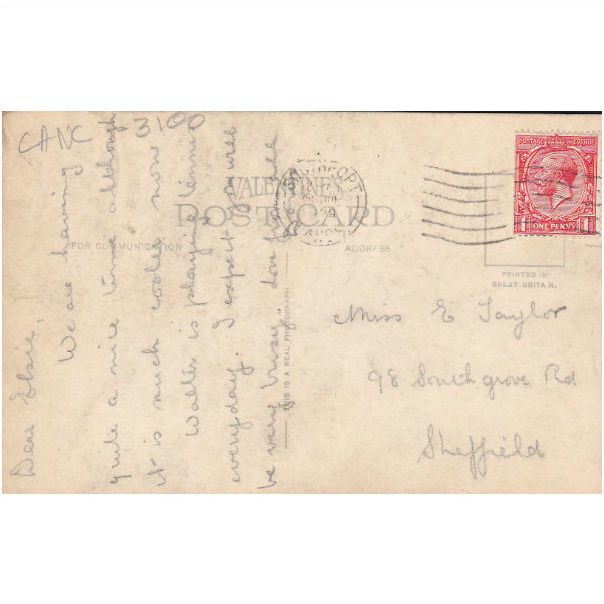 CANC 3100
VALENTINE'S
POST CARD
FOR COMMUNICATION
ADDRESS
THIS IS A REAL PHOTOGRAPH
PRINTED IN
GREAT BRITAIN.
POSTAGE REVENUE
ONE PENNY
Dear Elsie,
We are having
quite a nice time although
it is much cooler now
Walter is playing tennis
everyday. I expect you will
be very busy. love from all
Miss E Taylor
98 Southgrove Rd
Sheffield